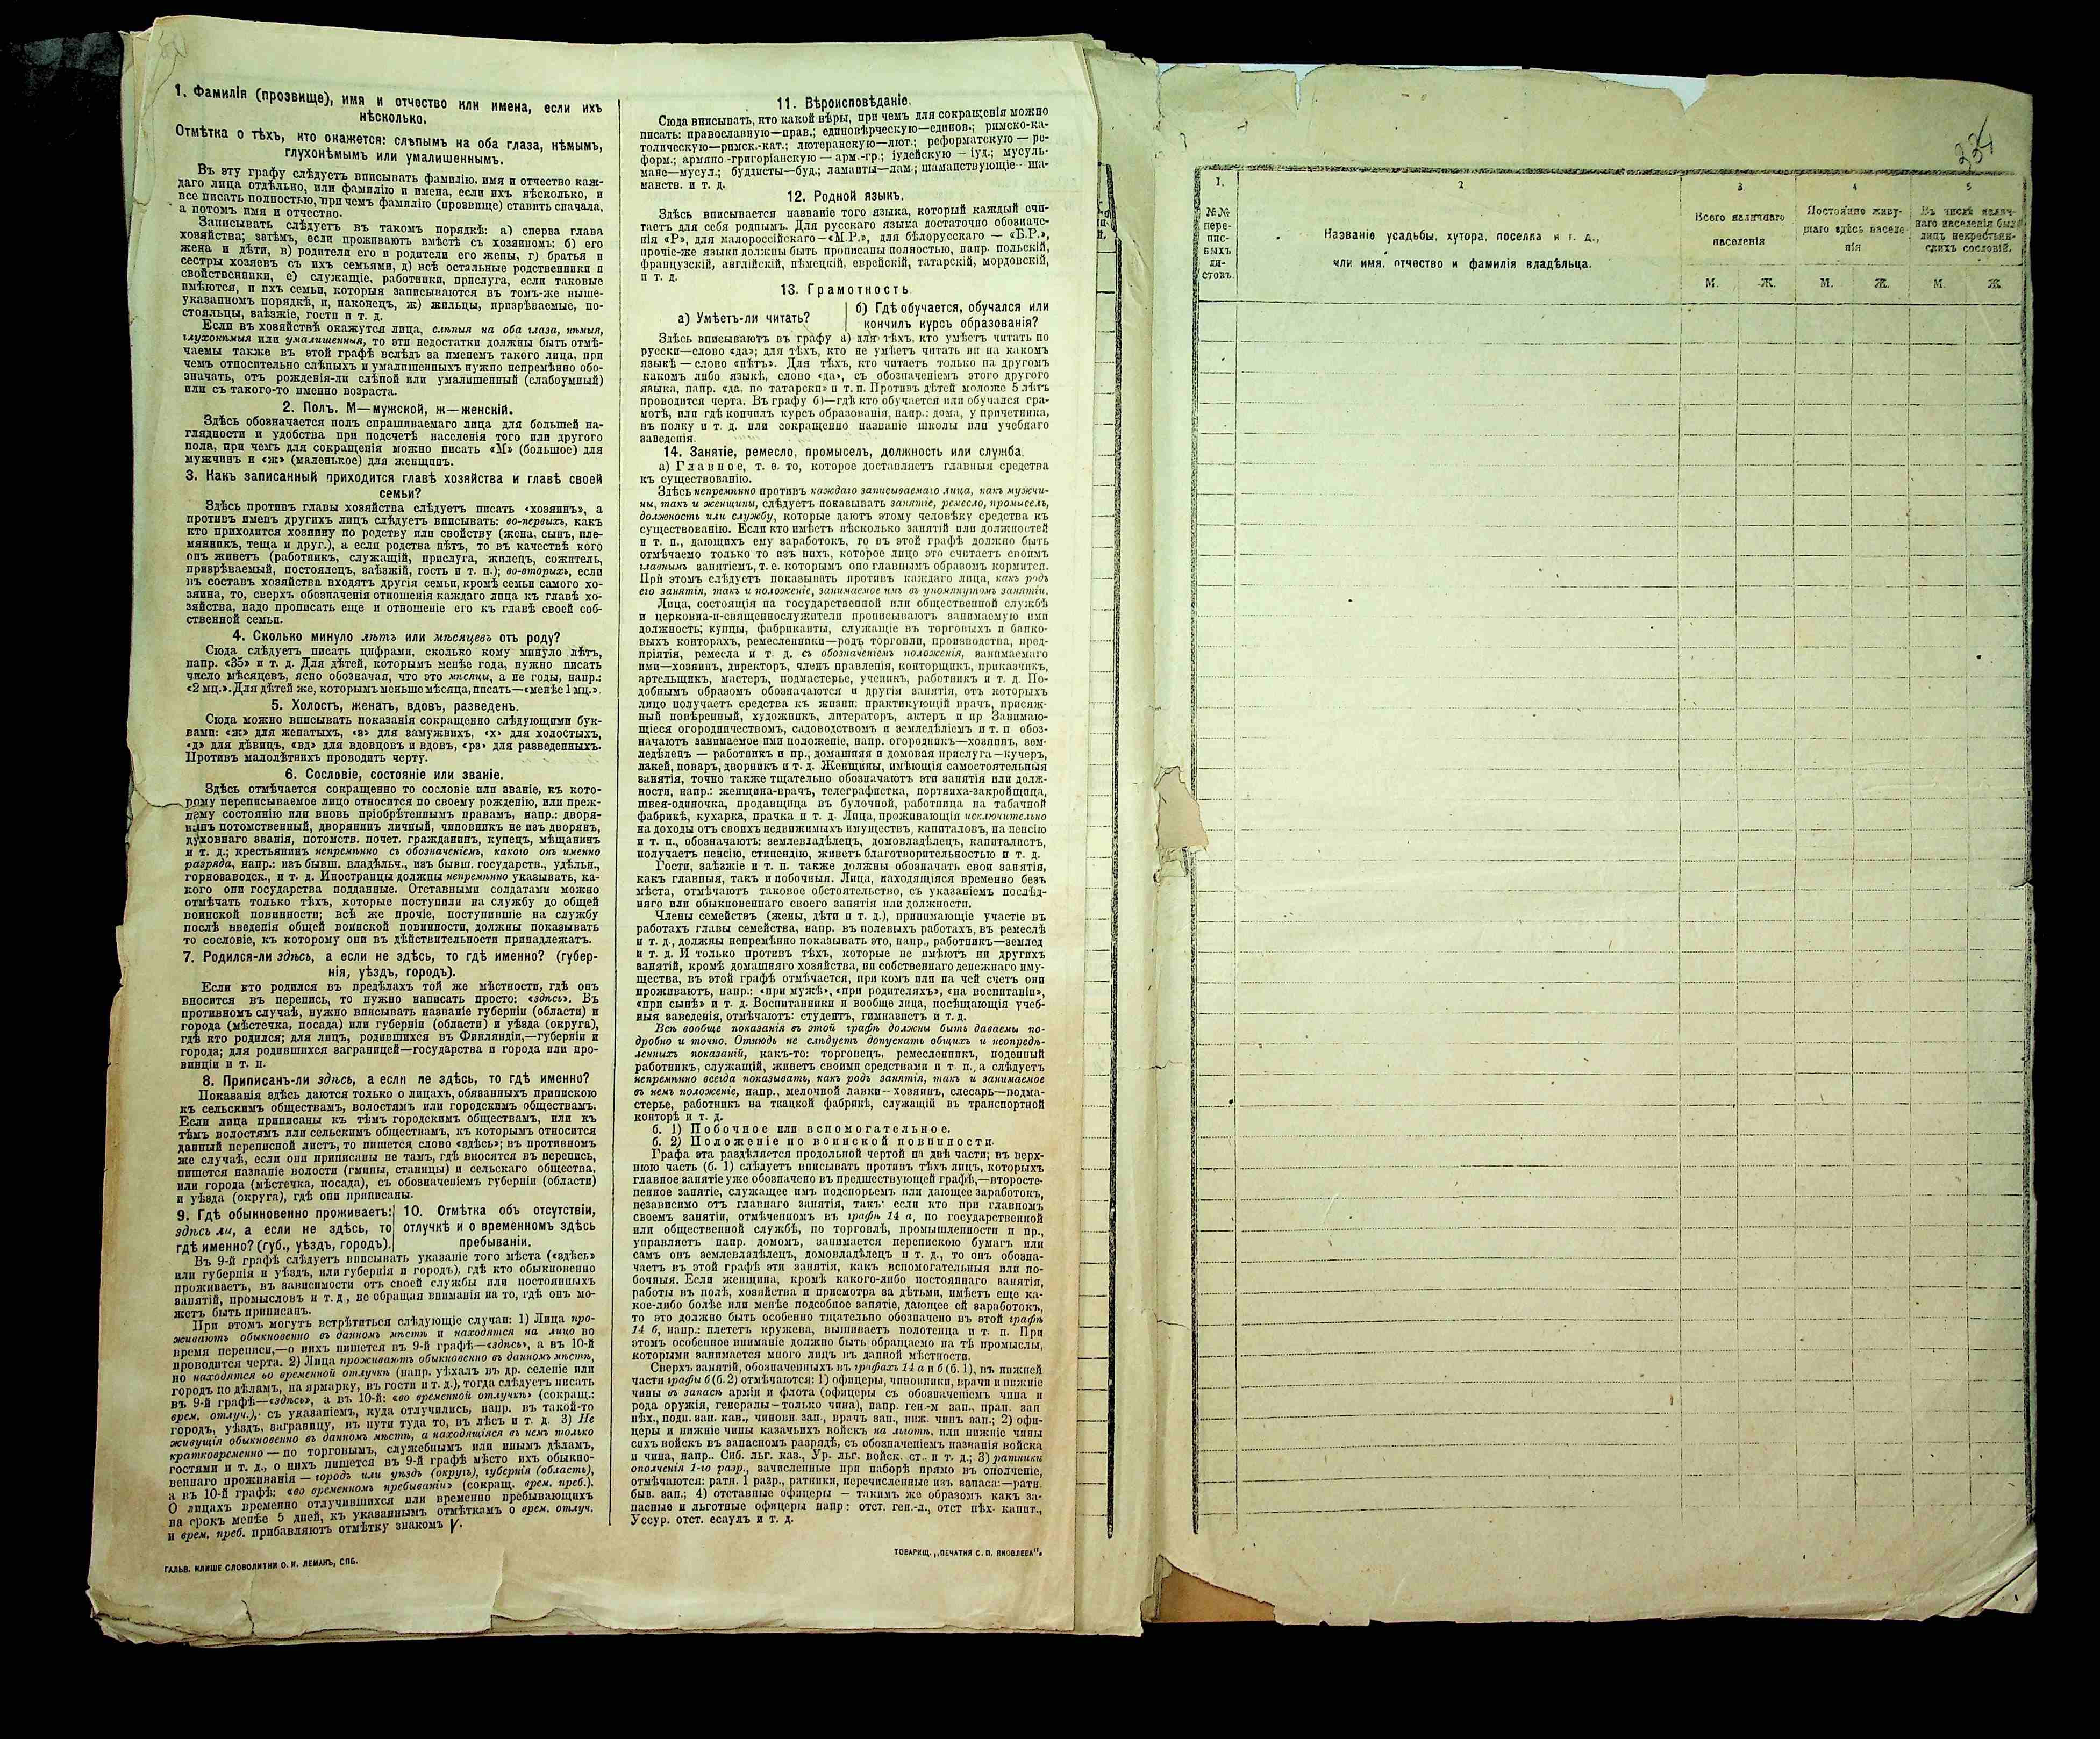 1. Фамилія (прозвище), имя и отчество или имена, если ихъ
нѣсколько.
Отмѣтка о тѣхъ, кто окажется: слѣпымъ на оба глаза, нѣмымъ,
глухонѣмымъ или умалишеннымъ.
Въ эту графу слѣдуетъ вписывать фамилію, имя и отчество каж-
даго лица отдѣльно, или фамилію и имена, если ихъ нѣсколько, и
все писать полностью, при чемъ фамилію (прозвище) ставить сначала,
а потомъ имя и отчество.
Записывать слѣдуетъ въ такомъ порядкѣ: а) сперва глава
хозяйства; затѣмъ, если проживаютъ вмѣстѣ съ хозяиномъ: б) его
жена и дѣти, в) родители его и родители его жены, г) братья и
сестры хозяевъ съ ихъ семьями, д) всѣ остальные родственники и
свойственники, е) служащіе, работники, прислуга, если таковые
имѣются, и ихъ семьи, которыя записываются въ томъ-же выше-
указанномъ порядкѣ, и, наконецъ, ж) жильцы, призрѣваемые, по-
стояльцы, заѣзжіе, гости и т. д.
Если въ хозяйствѣ окажутся лица, слѣпыя на оба глаза, нѣмыя,
глухонѣмыя или умалишенныя, то эти недостатки должны быть отмѣ-
чаемы также въ этой графѣ вслѣдъ за именемъ такого лица, при
чемъ относительно слѣпыхъ и умалишенныхъ нужно непремѣнно обо-
значать, отъ рожденія-ли слѣпой или умалишенный (слабоумный)
или съ такого-то именно возраста.
2. Полъ. М—мужской, ж—женскій.
Здѣсь обозначается полъ спрашиваемаго лица для большей на-
глядности и удобства при подсчетѣ населенія того или другого
пола, при чемъ для сокращенія можно писать «М» (большое) для
мужчинъ и «ж» (маленькое) для женщинъ.
3. Какъ записанный приходится главѣ хозяйства и главѣ своей
семьи?
Здѣсь противъ главы хозяйства слѣдуетъ писать «хозяинъ», а
противъ именъ другихъ лицъ слѣдуетъ вписывать: во-первыхъ, какъ
кто приходится хозяину по родству или свойству (жена, сынъ, пле-
мянникъ, теща и друг.), а если родства нѣтъ, то въ качествѣ кого
онъ живетъ (работникъ, служащій, прислуга, жилецъ, сожитель,
призрѣваемый, постоялецъ, заѣзжій, гость и т. п.); во-вторыхъ, если
въ составъ хозяйства входятъ другія семьи, кромѣ семьи самого хо-
зяина, то, сверхъ обозначенія отношенія каждаго лица къ главѣ хо-
зяйства, надо прописать еще и отношеніе его къ главѣ своей соб-
ственной семьи.
4. Сколько минуло лѣтъ или мѣсяцевъ отъ роду?
Сюда слѣдуетъ писать цифрами, сколько кому минуло лѣтъ,
напр. «35» и т. д. Для дѣтей, которымъ менѣе года, нужно писать
число мѣсяцевъ, ясно обозначая, что это мѣсяцы, а не годы, напр.:
«2 мц.». Для дѣтей же, которымъ меньше мѣсяца, писать—«менѣе 1 мц.».
5. Холостъ, женатъ, вдовъ, разведенъ.
Сюда можно вписывать показанія сокращенно слѣдующими бук-
вами: «ж» для женатыхъ, «з» для замужнихъ, «х» для холостыхъ,
«д» для дѣвицъ, «вд» для вдовцовъ и вдовъ, «рз» для разведенныхъ.
Противъ малолѣтнихъ проводить черту.
6. Сословіе, состояніе или званіе.
Здѣсь отмѣчается сокращенно то сословіе или званіе, къ кото-
рому переписываемое лицо относится по своему рожденію, или преж-
нему состоянію или вновь пріобрѣтеннымъ правамъ, напр.: дворя-
нинъ потомственный, дворянинъ личный, чиновникъ не изъ дворянъ,
духовнаго званія, потомств. почет. гражданинъ, купецъ, мѣщанинъ
и т. д.; крестьянинъ непремѣнно съ обозначеніемъ, какого онъ именно
разряда, напр.: изъ бывш. владѣльч., изъ бывш. государств., удѣльн.,
горнозаводск., и т. д. Иностранцы должны непремѣнно указывать, ка-
кого они государства подданные. Отставными солдатами можно
отмѣчать только тѣхъ, которые поступили на службу до общей
воинской повинности; всѣ же прочіе, поступившіе на службу
послѣ введенія общей воинской повинности, должны показывать
то сословіе, къ которому они въ дѣйствительности принадлежатъ.
7. Родился-ли здѣсь, а если не здѣсь, то гдѣ именно? (губер-
нія, уѣздъ, городъ).
Если кто родился въ предѣлахъ той же мѣстности, гдѣ онъ
вносится въ перепись, то нужно написать просто: «здѣсь». Въ
противномъ случаѣ, нужно вписывать названіе губерніи (области) и
города (мѣстечка, посада) или губерніи (области) и уѣзда (округа),
гдѣ кто родился; для лицъ, родившихся въ Финляндіи,—губерніи и
города; для родившихся заграницей—государства и города или про-
винціи и т. п.
8. Приписанъ-ли здѣсь, а если не здѣсь, то гдѣ именно?
Показанія здѣсь даются только о лицахъ, обязанныхъ припискою
къ сельскимъ обществамъ, волостямъ или городскимъ обществамъ.
Если лица приписаны къ тѣмъ городскимъ обществамъ, или къ
тѣмъ волостямъ или сельскимъ обществамъ, къ которымъ относится
данный переписной листъ, то пишется слово «здѣсь»; въ противномъ
же случаѣ, если они приписаны не тамъ, гдѣ вносятся въ перепись,
пишется названіе волости (гмины, станицы) и сельскаго общества,
или города (мѣстечка, посада), съ обозначеніемъ губерніи (области)
и уѣзда (округа), гдѣ они приписаны.
9. Гдѣ обыкновенно проживаетъ:
здѣсь ли, а если не здѣсь, то
гдѣ именно? (губ., уѣздъ, городъ).
10. Отмѣтка объ отсутствіи,
отлучкѣ и о временномъ здѣсь
пребываніи.
Въ 9-й графѣ слѣдуетъ вписывать указаніе того мѣста («здѣсь»
или губернія и уѣздъ, или губернія и городъ), гдѣ кто обыкновенно
проживаетъ, въ зависимости отъ своей службы или постоянныхъ
занятій, промысловъ и т. д., не обращая вниманія на то, гдѣ онъ мо-
жетъ быть приписанъ.
При этомъ могутъ встрѣтиться слѣдующіе случаи: 1) Лица про-
живаютъ обыкновенно въ данномъ мѣстѣ и находятся на лицо во
время переписи,—о нихъ пишется въ 9-й графѣ—«здѣсь», а въ 10-й
проводится черта. 2) Лица проживаютъ обыкновенно въ данномъ мѣстѣ,
но находятся во временной отлучкѣ (напр. уѣхалъ въ др. селеніе или
городъ по дѣламъ, на ярмарку, въ гости и т. д.), тогда слѣдуетъ писать
въ 9-й графѣ—«здѣсь», а въ 10-й: «во временной отлучкѣ» (сокращ.:
врем. отлуч.), съ указаніемъ, куда отлучились, напр. въ такой-то
городъ, уѣздъ, заграницу, въ пути туда то, въ лѣсъ и т. д. 3) Не
живущія обыкновенно въ данномъ мѣстѣ, а находящіяся въ немъ только
кратковременно — по торговымъ, служебнымъ или инымъ дѣламъ,
гостями и т. д., о нихъ пишется въ 9-й графѣ мѣсто ихъ обыкно-
веннаго проживанія — городъ или уѣздъ (округъ), губернія (область),
а въ 10-й графѣ: «во временномъ пребываніи» (сокращ. врем. преб.).
О лицахъ временно отлучившихся или временно пребывающихъ
на срокъ менѣе 5 дней, къ указаннымъ отмѣткамъ о врем. отлуч.
и врем. преб. прибавляютъ отмѣтку знакомъ V.
ГАЛЬВ. КЛИШЕ СЛОВОЛИТНИ О. И. ЛЕМАНЪ, СПБ.
11. Вѣроисповѣданіе.
Сюда вписывать, кто какой вѣры, при чемъ для сокращенія можно
писать: православную—прав.; единовѣрческую—единов.; римско-ка-
толическую—римск.-кат.; лютеранскую—лют.; реформатскую — ре-
форм.; армяно-григоріанскую — арм.-гр.; іудейскую — іуд.; мусуль-
мане—мусул.; буддисты—буд.; ламаиты—лам.; шаманствующіе—ша-
манств. и т. д.
12. Родной языкъ.
Здѣсь вписывается названіе того языка, который каждый счи-
таетъ для себя роднымъ. Для русскаго языка достаточно обозначе-
нія «Р», для малороссійскаго—«М.Р.», для бѣлорусскаго — «Б.Р.»,
прочіе-же языки должны быть прописаны полностью, напр. польскій,
французскій, англійскій, нѣмецкій, еврейскій, татарскій, мордовскій,
и т. д.
13. Грамотность
а) Умѣетъ-ли читать?
б) Гдѣ обучается, обучался или
кончилъ курсъ образованія?
Здѣсь вписываютъ въ графу а) для тѣхъ, кто умѣетъ читать по
русски—слово «да»; для тѣхъ, кто не умѣетъ читать ни на какомъ
языкѣ — слово «нѣтъ». Для тѣхъ, кто читаетъ только на другомъ
какомъ либо языкѣ, слово «да», съ обозначеніемъ этого другого
языка, напр. «да, по татарски» и т. п. Противъ дѣтей моложе 5 лѣтъ
проводится черта. Въ графу б)—гдѣ кто обучается или обучался гра-
мотѣ, или гдѣ кончилъ курсъ образованія, напр.: дома, у причетника,
въ полку и т. д. или сокращенно названіе школы или учебнаго
заведенія.
14. Занятіе, ремесло, промыселъ, должность или служба.
а) Главное, т. е. то, которое доставляетъ главныя средства
къ существованію.
Здѣсь непремѣнно противъ каждаго записываемаго лица, какъ мужчи-
ны, такъ и женщины, слѣдуетъ показывать занятіе, ремесло, промыселъ,
должность или службу, которые даютъ этому человѣку средства къ
существованію. Если кто имѣетъ нѣсколько занятій или должностей
и т. п., дающихъ ему заработокъ, то въ этой графѣ должно быть
отмѣчаемо только то изъ нихъ, которое лицо это считаетъ своимъ
главнымъ занятіемъ, т. е. которымъ оно главнымъ образомъ кормится.
При этомъ слѣдуетъ показывать противъ каждаго лица, какъ родъ
его занятія, такъ и положеніе, занимаемое имъ въ упомянутомъ занятіи.
Лица, состоящія на государственной или общественной службѣ
и церковна-и-священнослужители прописываютъ занимаемую ими
должность; купцы, фабриканты, служащіе въ торговыхъ и банко-
выхъ конторахъ, ремесленники—родъ торговли, производства, пред-
пріятія, ремесла и т. д. съ обозначеніемъ положенія, занимаемаго
ими—хозяинъ, директоръ, членъ правленія, конторщикъ, приказчикъ,
артельщикъ, мастеръ, подмастерье, ученикъ, работникъ и т. д. По-
добнымъ образомъ обозначаются и другія занятія, отъ которыхъ
лицо получаетъ средства къ жизни: практикующій врачъ, присяж-
ный повѣренный, художникъ, литераторъ, актеръ и пр Занимаю-
щіеся огородничествомъ, садоводствомъ и земледѣліемъ и т. п обоз-
начаютъ занимаемое ими положеніе, напр. огородникъ—хозяинъ, зем-
ледѣлецъ — работникъ и пр., домашняя и домовая прислуга—кучеръ,
лакей, поваръ, дворникъ и т. д. Женщины, имѣющія самостоятельныя
занятія, точно также тщательно обозначаютъ эти занятія или долж-
ности, напр.: женщина-врачъ, телеграфистка, портниха-закройщица,
швея-одиночка, продавщица въ булочной, работница на табачной
фабрикѣ, кухарка, прачка и т. д. Лица, проживающія исключительно
на доходы отъ своихъ недвижимыхъ имуществъ, капиталовъ, на пенсію
и т. п., обозначаютъ: землевладѣлецъ, домовладѣлецъ, капиталистъ,
получаетъ пенсію, стипендію, живетъ благотворительностью и т. д.
Гости, заѣзжіе и т. п. также должны обозначать свои занятія,
какъ главныя, такъ и побочныя. Лица, находящіяся временно безъ
мѣста, отмѣчаютъ таковое обстоятельство, съ указаніемъ послѣд-
няго или обыкновеннаго своего занятія или должности.
Члены семействъ (жены, дѣти и т. д.), принимающіе участіе въ
работахъ главы семейства, напр. въ полевыхъ работахъ, въ ремеслѣ
и т. д., должны непремѣнно показывать это, напр., работникъ—землед
и т. д. И только противъ тѣхъ, которые не имѣютъ ни другихъ
занятій, кромѣ домашняго хозяйства, ни собственнаго денежнаго иму-
щества, въ этой графѣ отмѣчается, при комъ или на чей счетъ они
проживаютъ, напр.: «при мужѣ», «при родителяхъ», «на воспитаніи»,
«при сынѣ» и т. д. Воспитанники и вообще лица, посѣщающія учеб-
ныя заведенія, отмѣчаютъ: студентъ, гимназистъ и т. д.
Всѣ вообще показанія въ этой графѣ должны быть даваемы по-
дробно и точно. Отнюдь не слѣдуетъ допускать общихъ и неопредѣ-
ленныхъ показаній, какъ-то: торговецъ, ремесленникъ, поденный
работникъ, служащій, живетъ своими средствами и т. п., а слѣдуетъ
непремѣнно всегда показывать, какъ родъ занятія, такъ и занимаемое
въ немъ положеніе, напр., мелочной лавки—хозяинъ, слесарь—подма-
стерье, работникъ на ткацкой фабрикѣ, служащій въ транспортной
конторѣ и т. д.
б. 1) Побочное или вспомогательное.
б. 2) Положеніе по воинской повинности.
Графа эта раздѣляется продольной чертой на двѣ части; въ верх-
нюю часть (б. 1) слѣдуетъ вписывать противъ тѣхъ лицъ, которыхъ
главное занятіе уже обозначено въ предшествующей графѣ,—второсте-
пенное занятіе, служащее имъ подспорьемъ или дающее заработокъ,
независимо отъ главнаго занятія, такъ: если кто при главномъ
своемъ занятіи, отмѣченномъ въ графѣ 14 а, по государственной
или общественной службѣ, по торговлѣ, промышленности и пр.,
управляетъ напр. домомъ, занимается перепискою бумагъ или
самъ онъ землевладѣлецъ, домовладѣлецъ и т. д., то онъ обозна-
чаетъ въ этой графѣ эти занятія, какъ вспомогательныя или по-
бочныя. Если женщина, кромѣ какого-либо постояннаго занятія,
работы въ полѣ, хозяйства и присмотра за дѣтьми, имѣетъ еще ка-
кое-либо болѣе или менѣе подсобное занятіе, дающее ей заработокъ,
то это должно быть особенно тщательно обозначено въ этой графѣ
14 б, напр.: плететъ кружева, вышиваетъ полотенца и т. п. При
этомъ особенное вниманіе должно быть обращаемо на тѣ промыслы,
которыми занимается много лицъ въ данной мѣстности.
Сверхъ занятій, обозначенныхъ въ графахъ 14 а и б (б. 1), въ нижней
части графы б (б. 2) отмѣчаются: 1) офицеры, чиновники, врачи и нижніе
чины въ запасѣ арміи и флота (офицеры съ обозначеніемъ чина и
рода оружія, генералы—только чина), напр. ген.-м зап., прап. зап
пѣх., подп. зап. кав., чиновн. зап., врачъ зап., ниж. чинъ зап.; 2) офи-
церы и нижніе чины казачьихъ войскъ на льготѣ, или нижніе чины
сихъ войскъ въ запасномъ разрядѣ, съ обозначеніемъ названія войска
и чина, напр.. Сиб. льг. каз., Ур. льг. войск. ст., и т. д.; 3) ратники
ополченія 1-го разр., зачисленные при наборѣ прямо въ ополченіе,
отмѣчаются: ратн. 1 разр., ратники, перечисленные изъ запаса:—ратн.
быв. зап.; 4) отставные офицеры — такимъ же образомъ какъ за-
пасные и льготные офицеры напр: отст. ген.-л., отст пѣх. капит.,
Уссур. отст. есаулъ и т. д.
ТОВАРИЩ. „ПЕЧАТНЯ С. П. ЯКОВЛЕВА".
1.
2
3
4
5
№№
пере-
пис-
ныхъ
ли-
стовъ.
Названіе усадьбы, хутора, поселка и т. д.,
или имя, отчество и фамилія владѣльца.
Всего наличнаго
населенія
Постоянно живу-
щаго здѣсь населе-
нія
Въ числѣ налич-
наго населенія было
лицъ некрестьян-
скихъ сословій.
М.
Ж.
М.
Ж.
М.
Ж